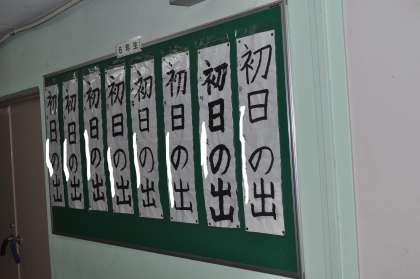 6年生
初日の出
初日の出
初日の出
初日の出
初日の出
初日の出
初日の出
初日の出